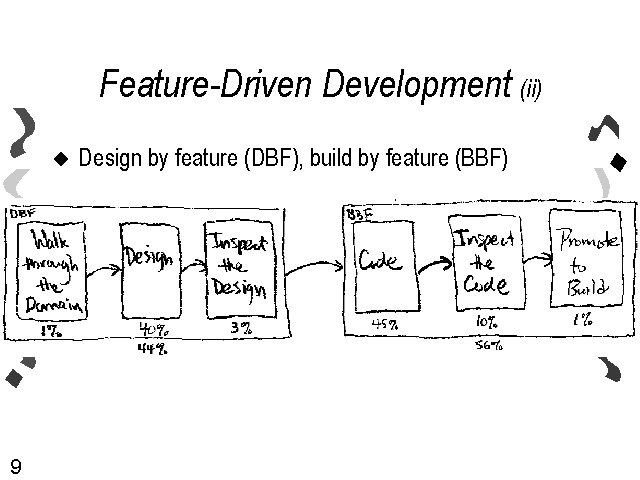 Feature-Driven Development (ii)
◆ Design by feature (DBF), build by feature (BBF)
DBF
Walk
through
the
Domain
1%
Design
40%
Inspect
the
Design
3%
44%
BBF
Code
45%
Inspect
the
Code
10%
Promote
to
Build
1%
56%
9